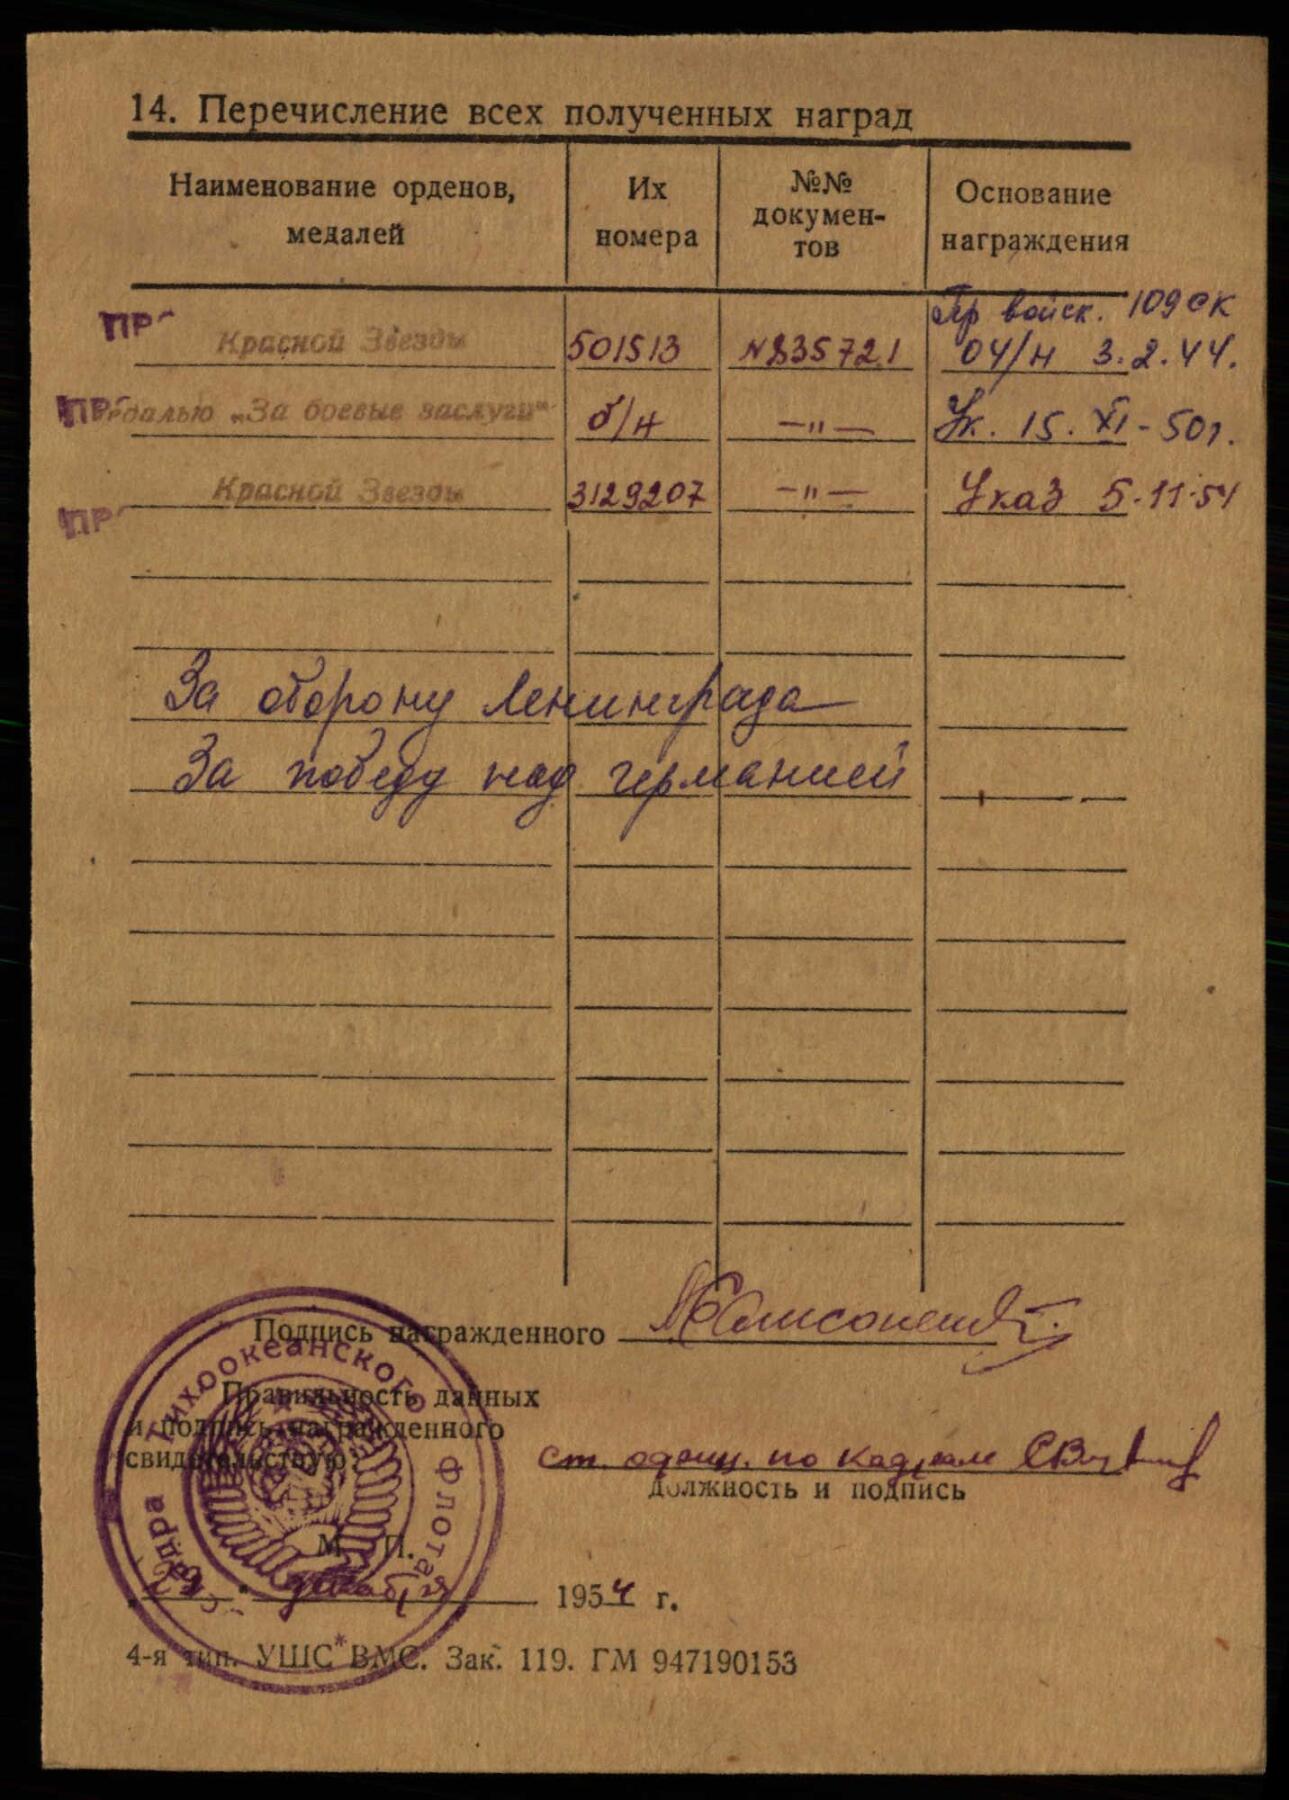 14. Перечисление всех полученных наград
Наименование орденов, медалей
Их номера
№№ докумен-
тов
Основание награждения
Пр войск. 109 СК
ПР Красной Звезды 501513 №835721 04/н 3.2.44.
ПР едалью „За боевые заслуги“ б/н —"— Ук. 15. XI - 50г.
Красной Звезды 3129207 —"— Указ 5.11.54
ПР
За оборону Ленинграда
За победу над германией
Подпись награжденного
Правильность данных
и подпись награжденного
свидетельствую:
ст. офиц. по кадрам
Должность и подпись
Тихоокеанского Флота
М. П.
декабря 1954 г.
4-я тип. УШС ВМС. Зак. 119. ГМ 947190153